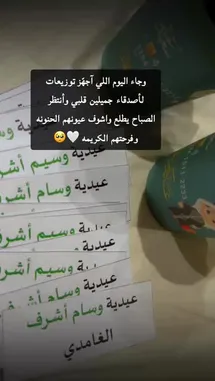 وجاء اليوم اللي آجهّز توزيعات
لأصدقاء جميلين قلبي وأنتظر
الصباح يطلع واشوف عيونهم الحنونه
وفرحتهم الكريمه 🤍🥺
عيدية وسيم أشرف
عيدية وسام أشرف
عيدية وسيم أشرف
عيدية وسام أشرف
عيدية وسام أشرف
الغامدي